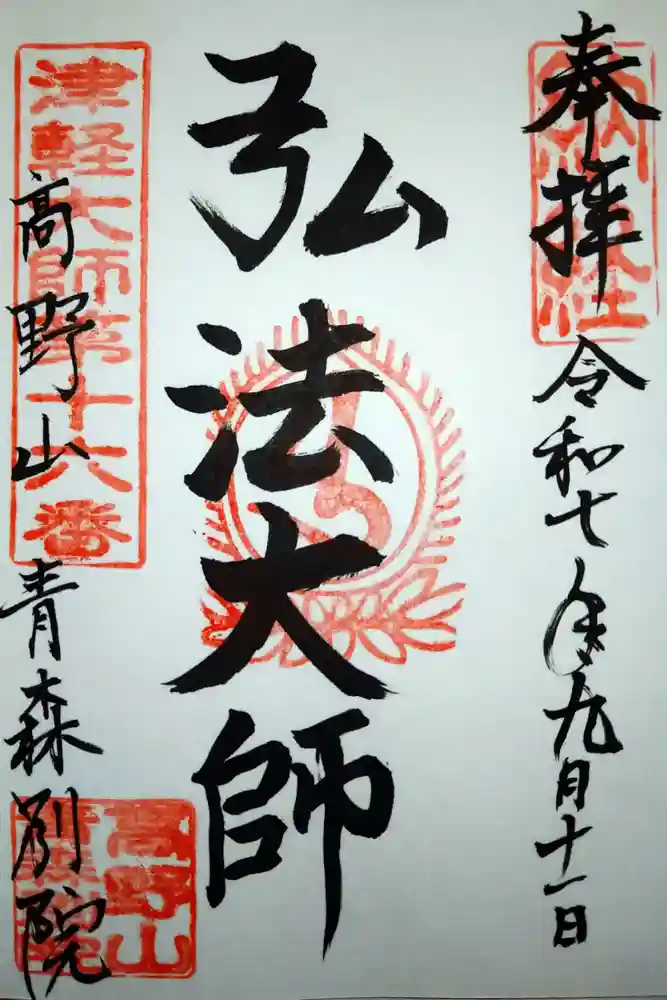 奉拝
納経
令和七年九月十一日
弘法大師
津軽大師第十六番
高野山
青森別院
高野山
青森別院